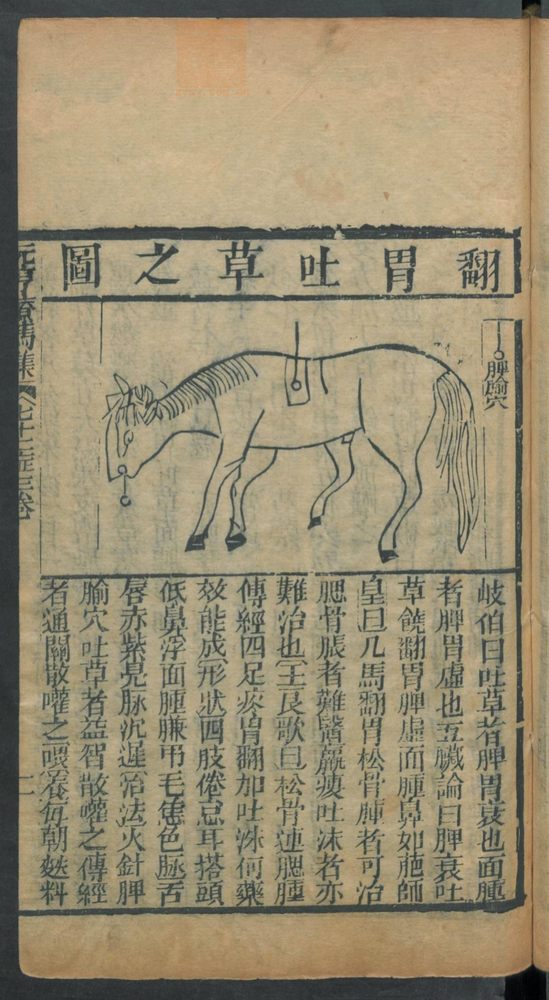 翻胃吐草之圖
脾腧穴
岐伯曰吐草者脾胃衰也面腫
者脾胃虛也五臟論曰脾衰吐
草饒翻胃脾虛面腫鼻如葹師
皇曰凡馬翻胃松骨腫者可治
腮骨脹者難醫羸瘦吐沫者亦
難治也王良歌曰松骨連腮腫
傳經四足疼胃翻加吐沫何藥
效能成形狀四肢倦怠耳搭頭
低鼻浮面腫膁弔毛焦色脉舌
唇赤紫晃脉沉遲治法火針脾
腧穴吐草者益智散嚾之傳經
者通關散嚾之喂養每朝麩料
元亨療馬集 七十二症三卷